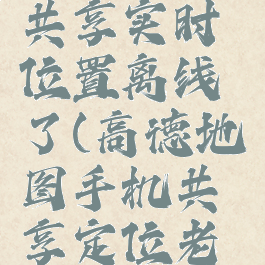 共享实时
位置离线
了(高德地
图手机共
享定位老